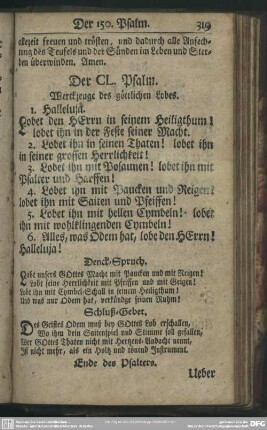 Der 150. Psalm. 319
allezeit freuen und trösten, und dadurch alle Anfech-
tung des Teufels und der Sünden im Leben und Ster-
ben überwinden. Amen.
Der CL. Psalm.
Werkzeuge des göttlichen Lobes.
1. Halleluja.
Lobet den HErrn in seinem Heiligthum!
lobet ihn in der Feste seiner Macht.
2. Lobet ihn in seinen Thaten! lobet ihn
in seiner grossen Herrlichkeit!
3. Lobet ihn mit Posaunen! lobet ihn mit
Psalter und Harffen!
4. Lobet ihn mit Paucken und Reigen!
lobet ihn mit Saiten und Pfeiffen!
5. Lobet ihn mit hellen Cymbeln! lobet
ihn mit wohlklingenden Cymbeln!
6. Alles, was Odem hat, lobe den HErrn!
Halleluja!
Denck-Spruch.
Lobt unsers GOttes Macht mit Paucken und mit Reigen!
Lobt seine Herrlichkeit mit Pfeiffen und mit Geigen!
Lobt ihn mit Cymbel-Schall in seinem Heiligthum!
Und was nur Odem hat, verkündge seinen Ruhm!
Schluß-Gebet.
Des Geistes Odem muß bey GOttes Lob erschallen,
Wo ihm dein Saitenspiel und Stimme soll gefallen,
Wer GOttes Thaten nicht mit Hertzens-Andacht nennt,
Ist nicht mehr, als ein Holtz und tönend Instrument.
Ende des Psalters.
Ueber